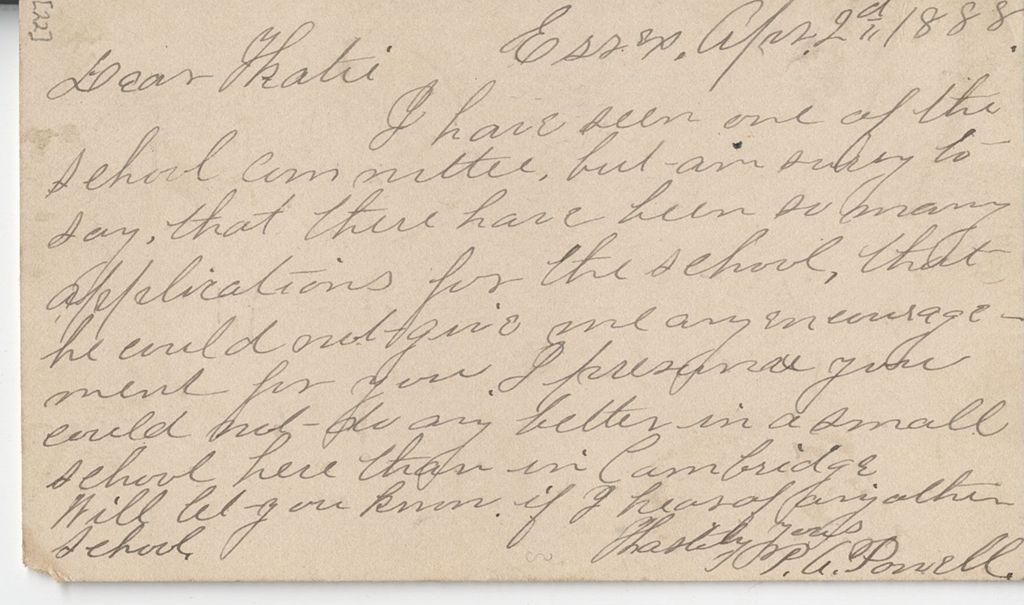 [22]
Essex, Apr. 2d, 1888.
Dear Katie
I have seen one of the
school committee, but am sorry to
say, that there have been so many
applications for the school, that
he could not give me any encourage-
ment for you. I presume you
could not do any better in a small
school here than in Cambridge
Will let you know if I hear of any other
school.
Hastily yours
P. A. Powell.